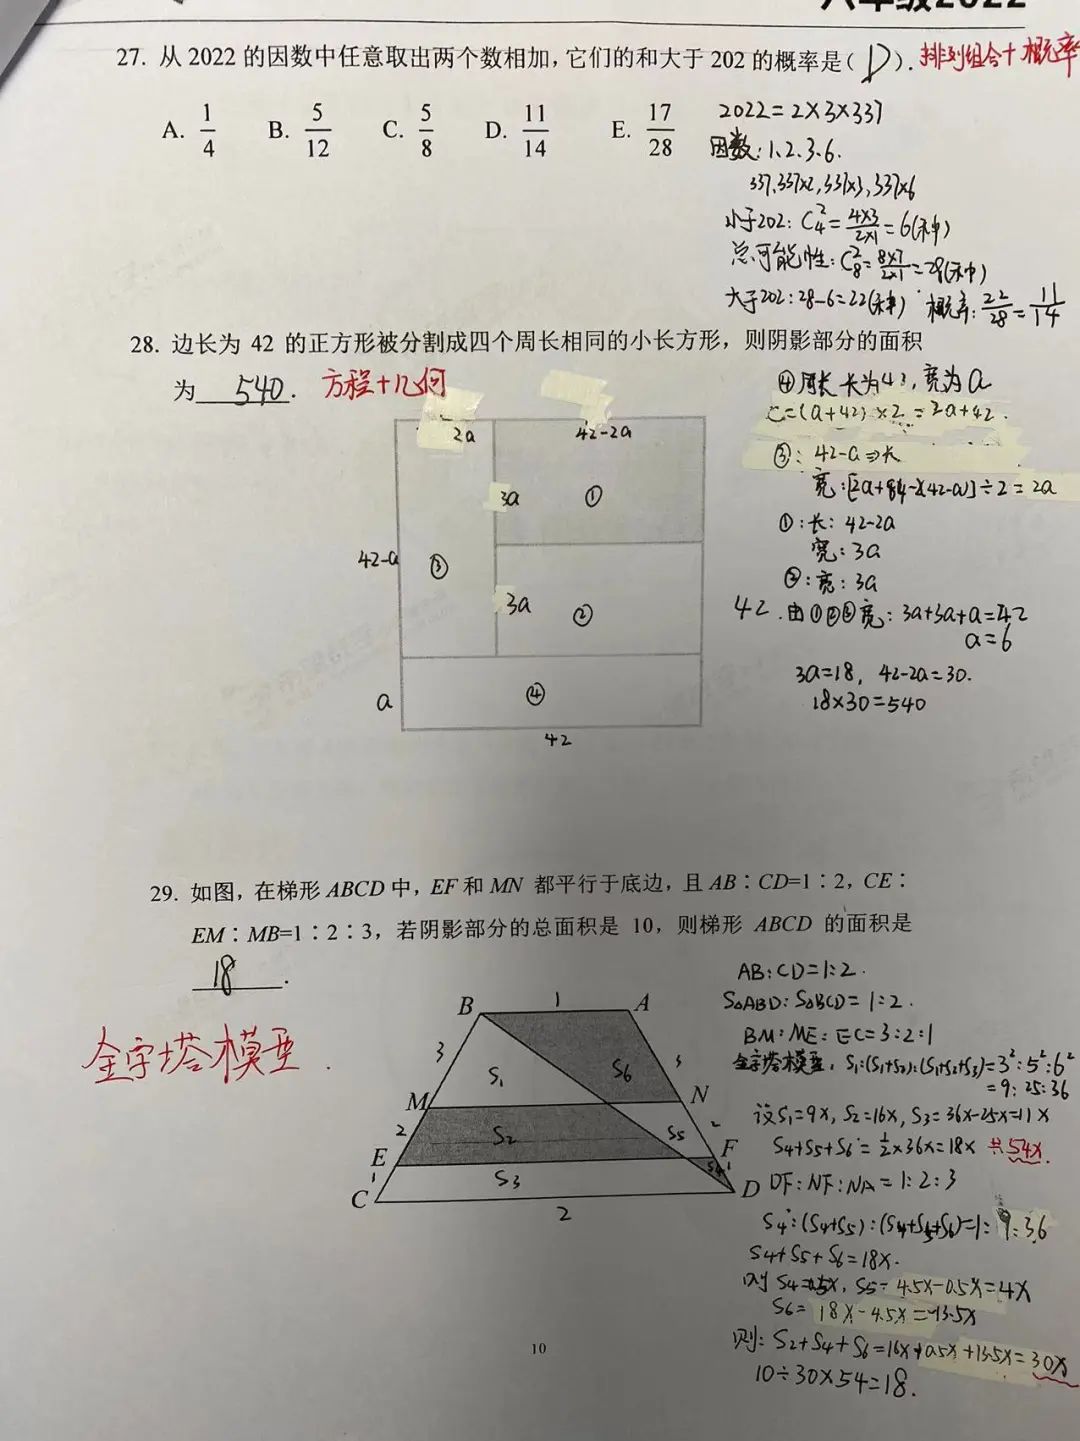 八年级2022
27. 从 2022 的因数中任意取出两个数相加，它们的和大于 202 的概率是( D ). 排列组合+概率
A. 1/4 B. 5/12 C. 5/8 D. 11/14 E. 17/28
2022=2×3×337
因数:1.2.3.6.
337,337×2,337×3,337×6
小于202: C₄²=4×3/2×1=6(种)
总可能性: C₈²=8×7/2×1=28(种)
大于202:28-6=22(种) 概率:22/28=11/14
28. 边长为 42 的正方形被分割成四个周长相同的小长方形，则阴影部分的面积
为 540 . 方程+几何
2a
42-2a
3a
①
42-a
③
3a
②
a
④
42
④周长 长为42,宽为a
C=(a+42)×2=2a+42.
③: 42-a⇒长
宽:[2a+84-2(42-a)]÷2=2a
①:长: 42-2a
宽:3a
②:宽:3a
42.由①②④宽:3a+3a+a=42
a=6
3a=18, 42-2a=30.
18×30=540
29. 如图，在梯形 ABCD 中，EF 和 MN 都平行于底边，且 AB∶CD=1∶2，CE∶
EM∶MB=1∶2∶3，若阴影部分的总面积是 10，则梯形 ABCD 的面积是
18 .
金字塔模型.
B 1 A
3 S₁ S₆ 3
M N
2 S₂ S₅ 2
E S₄ F
1 S₃ 1
C D
2
AB:CD=1:2.
S△ABD:S△BCD=1:2.
BM:ME:EC=3:2:1
金字塔模型, S₁:(S₁+S₂):(S₁+S₂+S₃)=3²:5²:6²
=9:25:36
设S₁=9x, S₂=16x, S₃=36x-25x=11x
S₄+S₅+S₆=1/2×36x=18x 共54x.
DF:NF:NA=1:2:3
S₄:(S₄+S₅):(S₄+S₅+S₆)=1:9:36
S₄+S₅+S₆=18x.
则S₄=0.5x, S₅=4.5x-0.5x=4x
S₆=18x-4.5x=13.5x
则: S₂+S₄+S₆=16x+0.5x+13.5x=30x
10÷30×54=18.
10